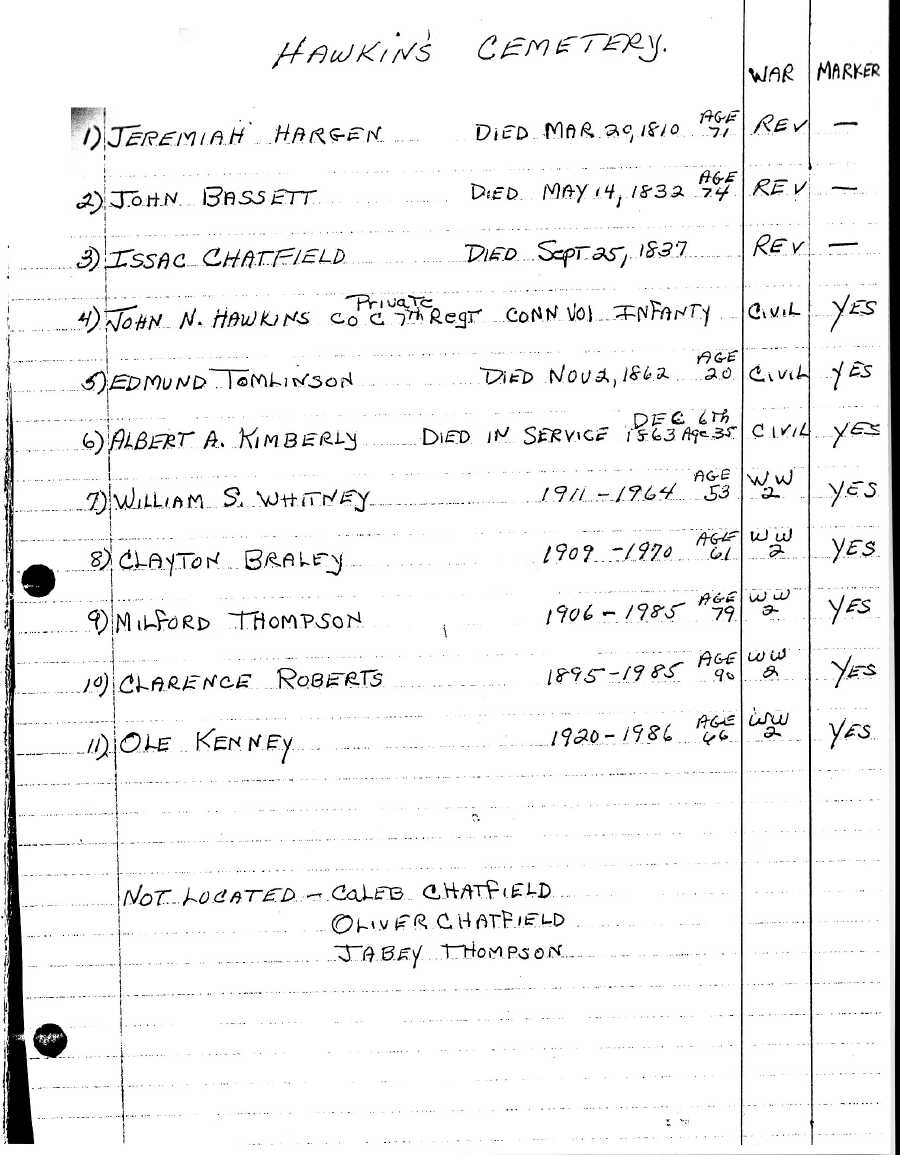 HAWKIN'S CEMETERY.
WAR MARKER
1) JEREMIAH HARGEN DIED MAR 20, 1810 AGE 71 REV —
2) JOHN BASSETT DIED MAY 14, 1832 AGE 74 REV —
3) ISSAC CHATFIELD DIED SEPT 25, 1837 REV —
4) JOHN N. HAWKINS Private CO C 7th Regt CONN VOl INFANTY CIVIL YES
5) EDMUND TOMLINSON DIED NOV 2, 1862 AGE 20 CIVIL YES
6) ALBERT A. KIMBERLY DIED IN SERVICE DEC 6th 1863 Age 35 CIVIL YES
7) WILLIAM S. WHITNEY 1911-1964 AGE 53 WW 2 YES
8) CLAYTON BRALEY 1909-1970 AGE 61 WW 2 YES
9) MILFORD THOMPSON 1906-1985 AGE 79 WW 2 YES
10) CLARENCE ROBERTS 1895-1985 AGE 90 WW 2 YES
11) OLE KENNEY 1920-1986 AGE 66 WW 2 YES
NOT LOCATED - CALEB CHATFIELD
OLIVER CHATFIELD
JABEY THOMPSON